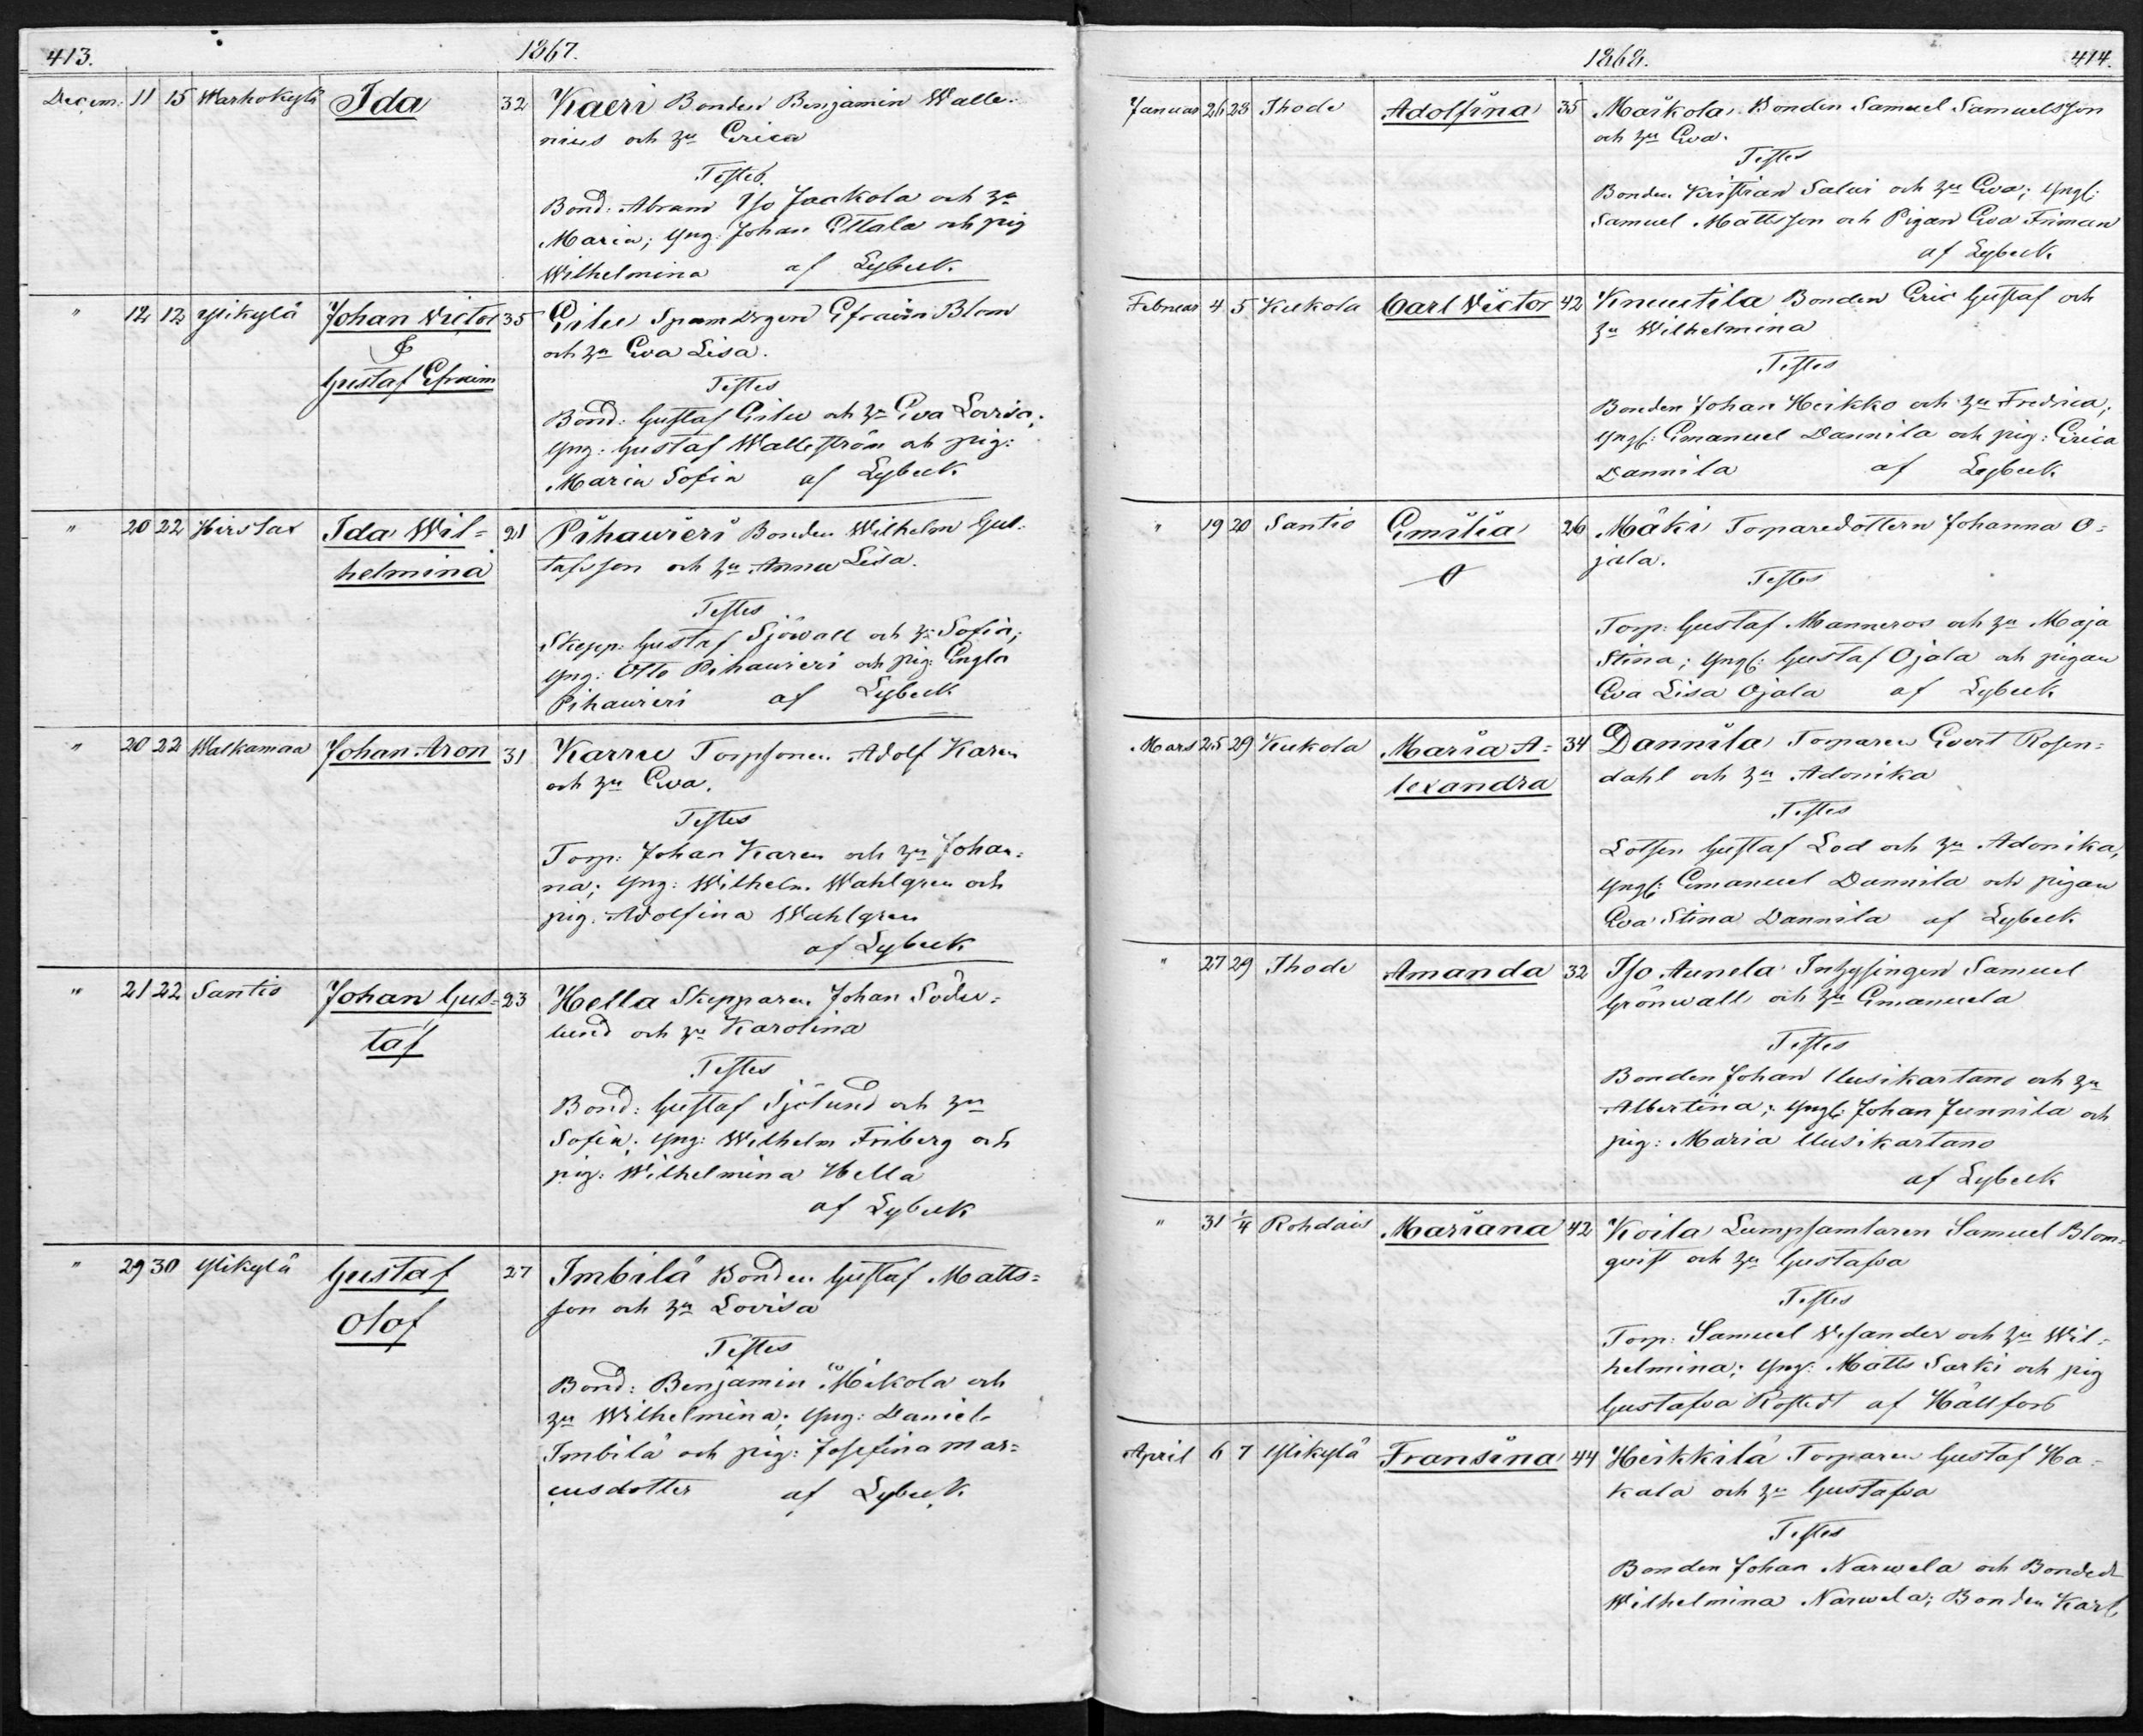 413.
1867.
Decem: 11 15 Warhokylä Ida 32 Kaeri Bonden Benjamin Walle-
nius och hu Erica
Testes.
Bond: Abram Iso Jaakola och hu
Maria; yng: Johan Ettala och pig
Wilhelmina af Lybeck.
" 12 12 Ylikylä Johan Victor 35 Eriksson Efraim Blom
& och hu Eva Lisa.
Gustaf Efraim
Testes
Bond: Gustaf och hu Eva Lovisa;
yng: Gustaf Wallström och pig:
Maria Sofia af Lybeck
" 20 22 Hirslax Ida Wil= 21 Pihawieri Bonden Wilhelm Gus-
helmina tafsson och hu Anna Lisa.
Testes
Skepp: Gustaf Sjöwall och hu Sofia;
yng: Otto Pihawieri och pig: Engla
Pihawieri af Lybeck
" 20 22 Walkamaa Johan Aron 31 Karru Torpsonen Adolf Karen
och hu Eva.
Testes
Torp: Johan Karen och hu Johan-
na; yng: Wilhelm Wahlgren och
pig. Adolfina Wahlgren
af Lybeck
" 21 22 Santio Johan Gus= 23 Hella Skepparen Johan Söder-
taf lund och hu Karolina
Testes
Bond: Gustaf Sjölund och hu
Sofia; yng: Wilhelm Friberg och
pig: Wilhelmina Hella
af Lybeck
" 29 30 Ylikylä Gustaf 27 Imbilä Bonden Gustaf Matts=
Olof son och hu Lovisa
Testes
Bond: Benjamin Mikola och
hu Wilhelmina; yng: Daniel
Imbilä och pig: Josefina mar=
cusdotter af Lybeck
1868. 414.
Januar 26 28 Thode Adolfina 35 Maikola Bonden Samuel Samuelsson
och hu Eva.
Testes
Bonden Kristian Salvi och hu Eva; yngl:
Samuel Mattsson och Pigan Eva Friman
af Lybeck
Februar 4 5 Kukola Carl Victor 42 Knuutila Bonden Eric Gustaf och
hu Wilhelmina
Testes
Bonden Johan Heikko och hu Fredrica;
yngl: Emanuel Dannila och pig: Erica
Dannila af Lybeck
" 19 20 Santio Emilia 26 Mäki Toparedottern Johanna O=
jala.
Testes
Torp: Gustaf Manneros och hu Maja
Stina; yngl: Gustaf Ojala och pigan
Eva Lisa Ojala af Lybeck
Mars 25 29 Kukola Maria A= 34 Dannila Toparen Evert Rosen=
lexandra dahl och hu Adonika
Testes
Lotsen Gustaf Lod och hu Adonika,
yngl: Emanuel Dannila och pigan
Eva Stina Dannila af Lybeck
" 27 29 Thode Amanda 32 Iso Aunela Inhysingen Samuel
Grönwall och hu Emanuela
Testes
Bonden Johan Uusikartano och hu
Albertina; yngl: Johan Junnila och
pig: Maria Uusikartano
af Lybeck
" 31 1/4 Rohdais Mariana 42 Koila Lumpsamlaren Samuel Blom=
qvist och hu Gustafva
Testes
Torp: Samuel Wesander och hu Wil-
helmina; yng: Matts Sarki och pig
Gustafva Rostedt af Hällfors
April 6 7 Ylikylä Fransina 44 Heikkilä Torparen Gustaf Ha-
kala och hu Gustafva
Testes
Bonden Johan Narwela och Bonded
Wilhelmina Narwela; Bonden Karl